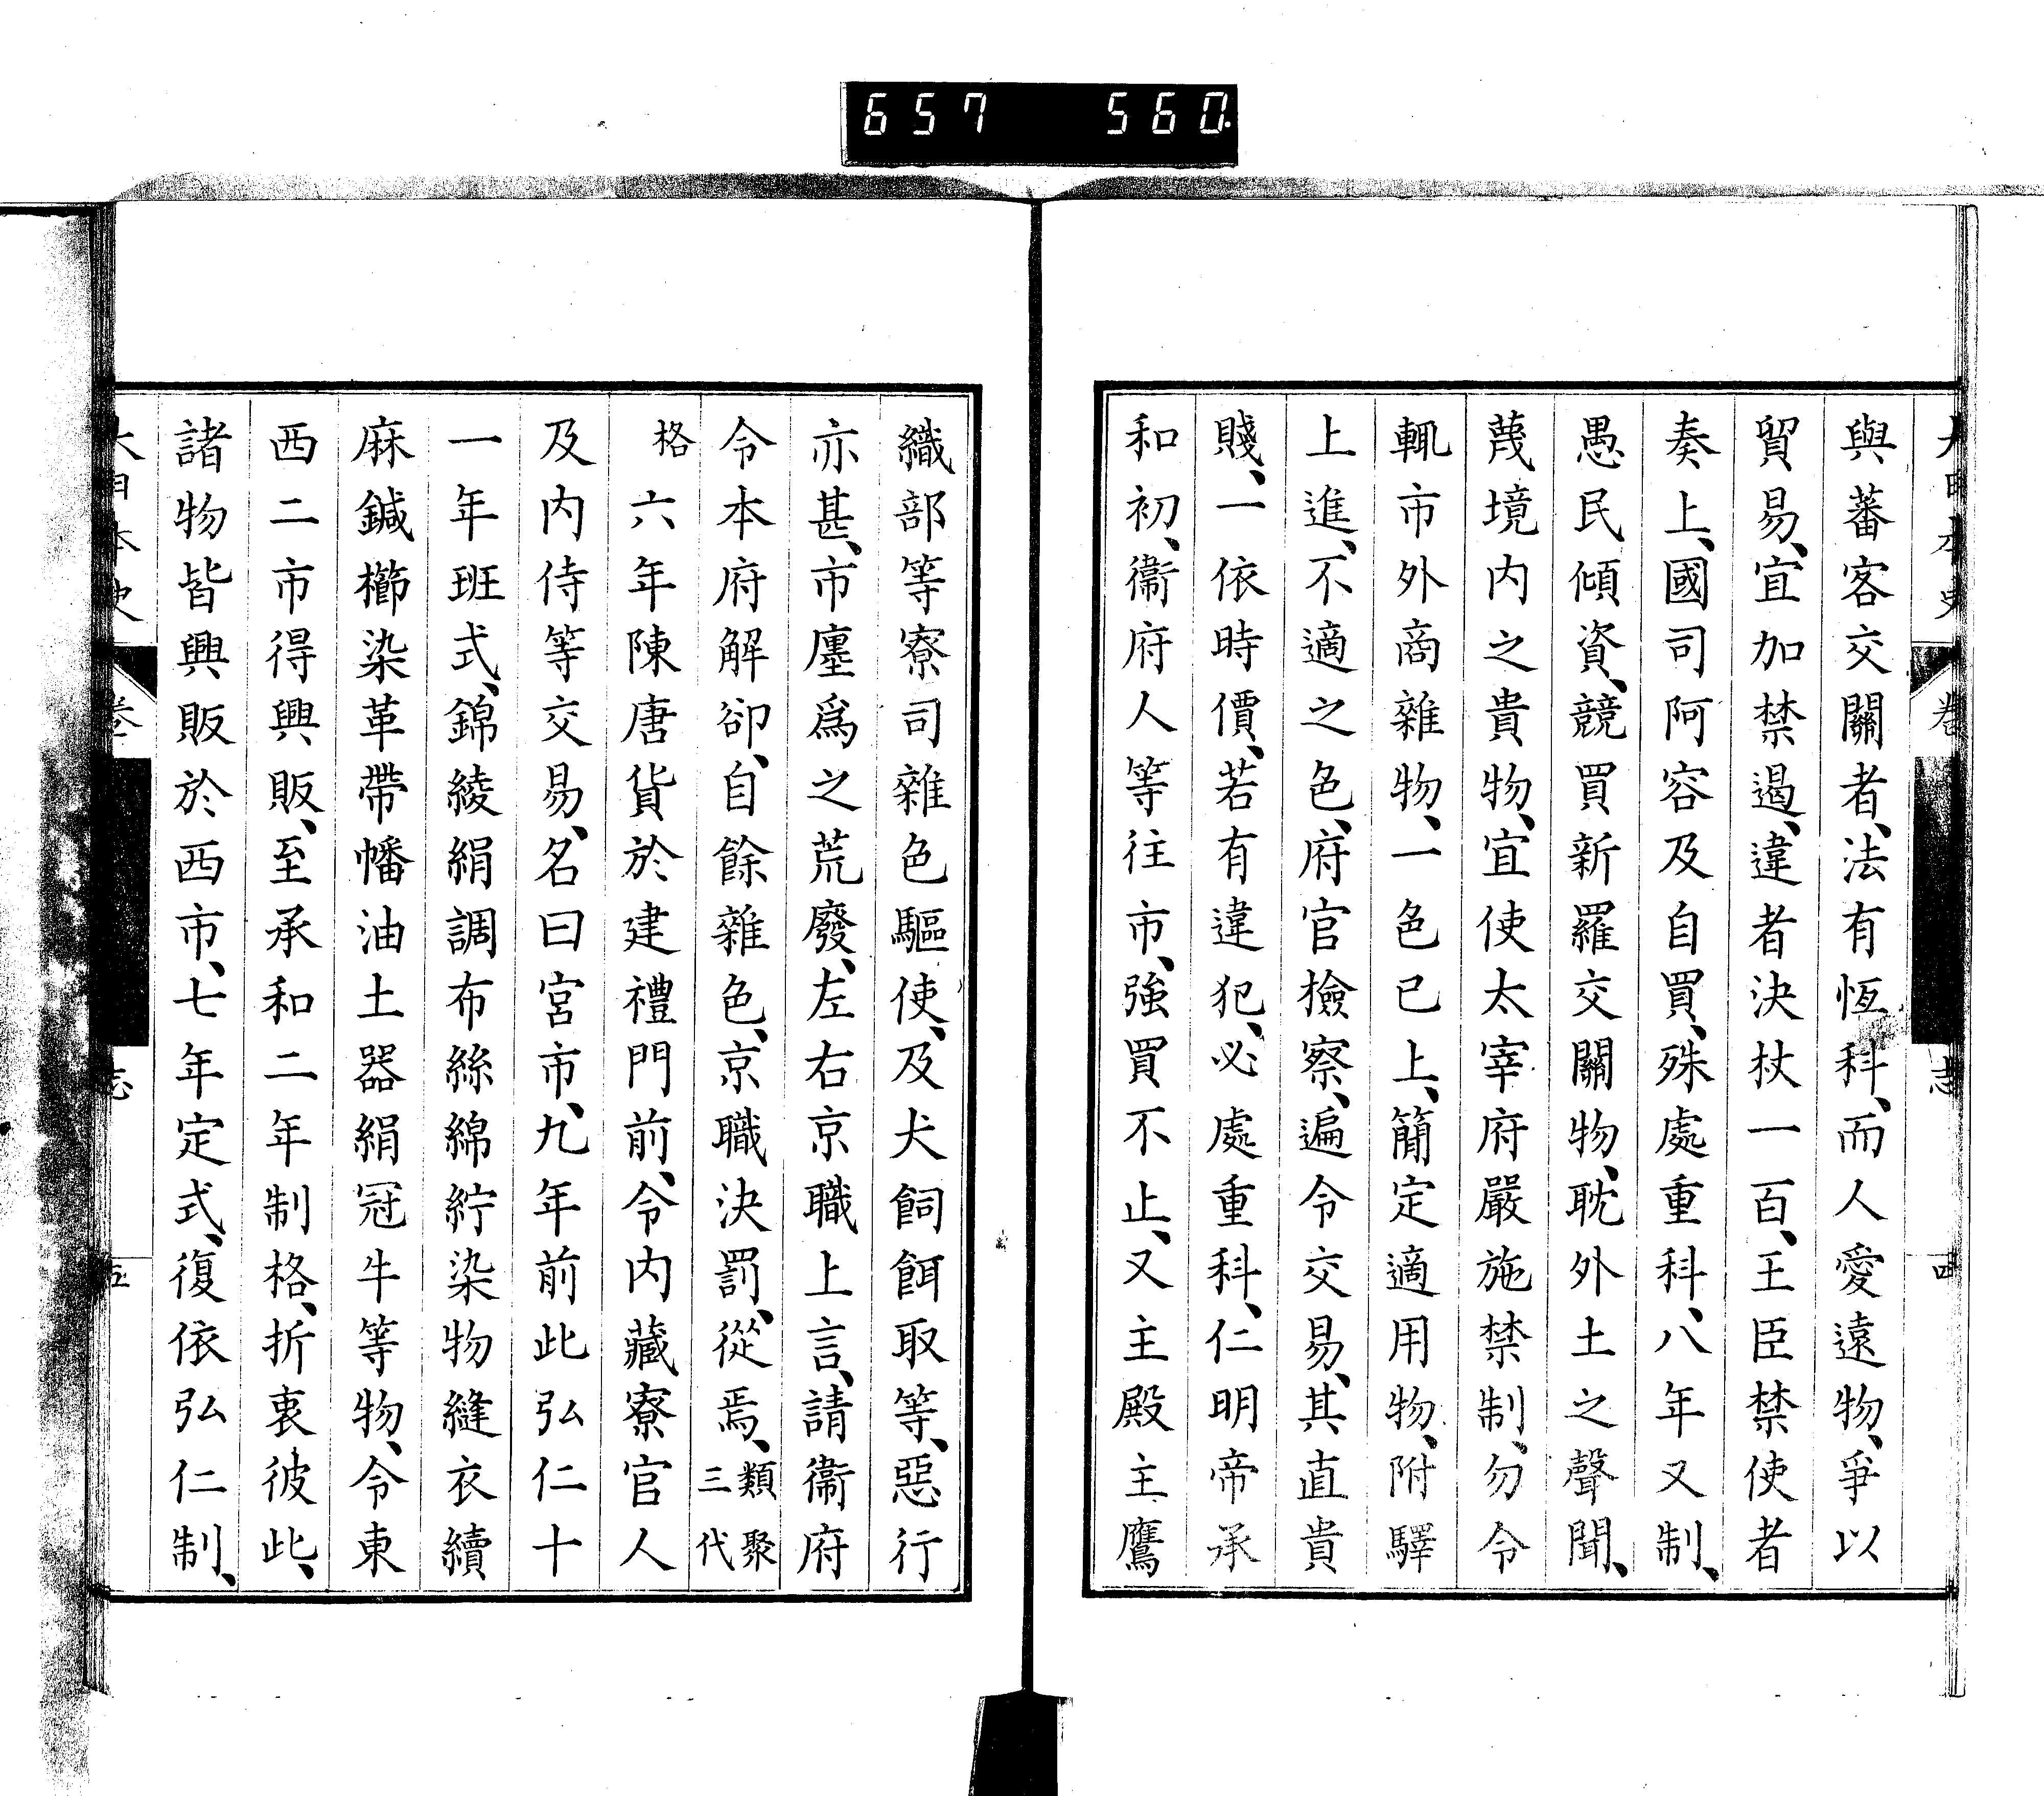 657 560
大日本史 卷 志 四
與蕃客交關者、法有恆科、而人愛遠物、爭以
貿易、宜加禁遏、違者決杖一百、王臣禁使者
奏上、國司阿容及自買、殊處重科、八年又制、
愚民傾資、競買新羅交關物、耽外土之聲聞、
蔑境内之貴物、宜使太宰府嚴施禁制、勿令
輒市外商雜物、一色已上、簡定適用物、附驛
上進、不適之色、府官撿察、遍令交易、其直貴
賤、一依時價、若有違犯、必處重科、仁明帝承
和初、衞府人等往市、強買不止、又主殿主鷹
織部等寮司雜色驅使、及犬飼餌取等、惡行
亦甚、市廛爲之荒廢、左右京職上言、請衞府
令本府解卻、自餘雜色、京職決罰、從焉、類聚三代
格六年陳唐貨於建禮門前、令内藏寮官人
及内侍等交易、名曰宮市、九年前此弘仁十
一年班式、錦綾絹調布絲綿紵染物縫衣續
麻鍼櫛染革帶幡油土器絹冠牛等物、令東
西二市得興販、至承和二年制格、折衷彼此、
諸物皆興販於西市、七年定式、復依弘仁制、
大日本史 卷 志 五